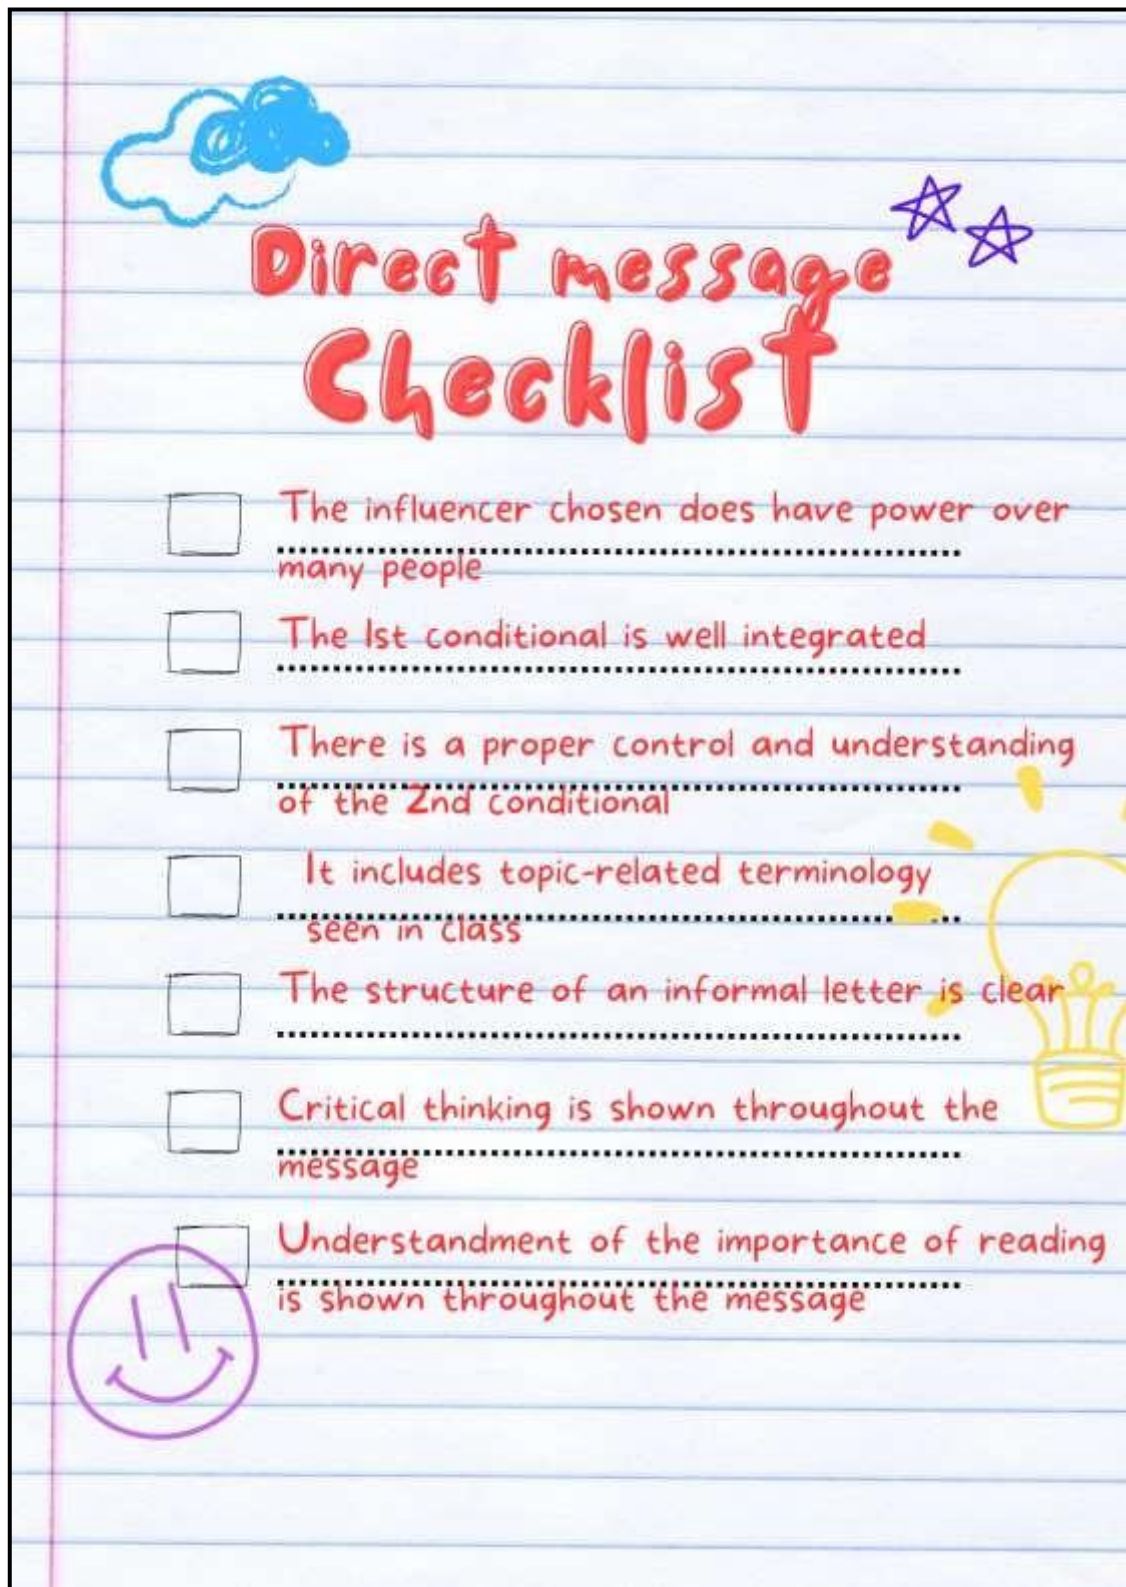 Direct message
Checklist
The influencer chosen does have power over
many people
The 1st conditional is well integrated
There is a proper control and understanding
of the 2nd conditional
It includes topic-related terminology
seen in class
The structure of an informal letter is clear
Critical thinking is shown throughout the
message
Understandment of the importance of reading
is shown throughout the message